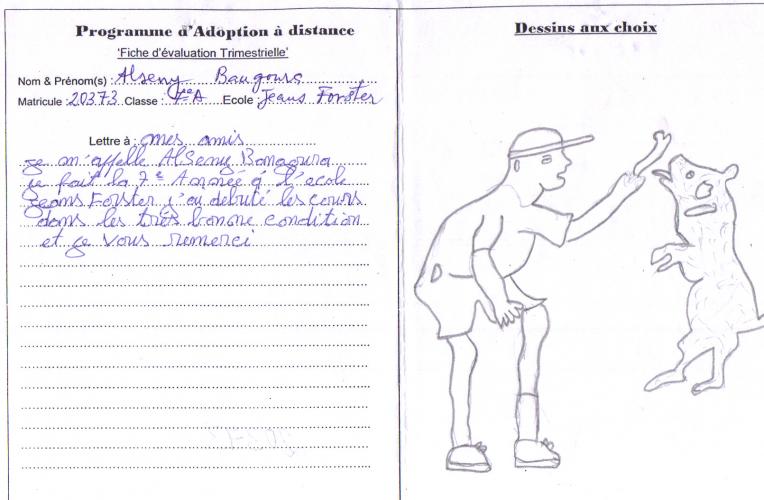 Programme d'Adoption à distance
'Fiche d'évaluation Trimestrielle'
Nom & Prénom(s) : Alseny Bangoura
Matricule : 20373 Classe : 7eA Ecole : Jeans Forster
Lettre à : mes amis
je m'appelle Alseny Bangoura
je fait la 7e Année à l'école
Jeans Forster j'ai debuté les cours
dans les très bonne condition
et je vous remerci.
Dessins aux choix